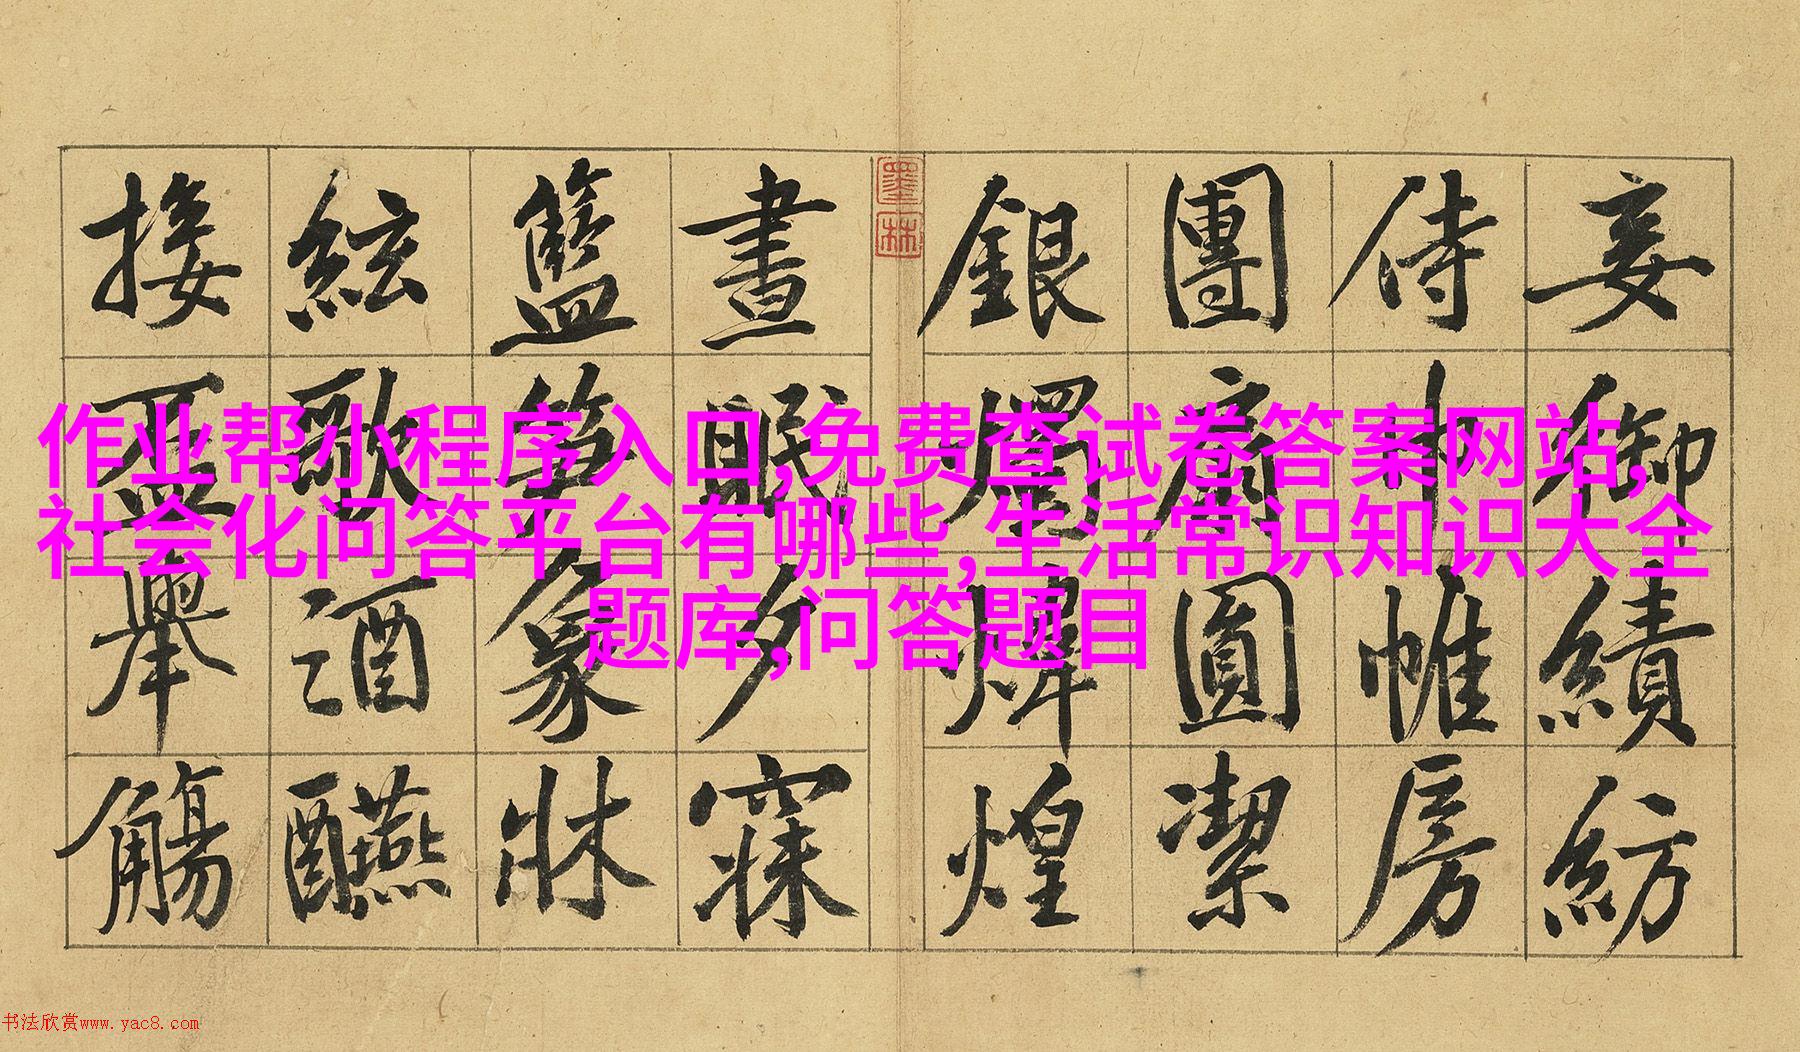 妾御績紡
侍巾帷房
團扇圓潔
銀燭煒煌
墨林
晝眠夕寐
籃笋象牀
絃歌酒醼
接盃舉觴
作业帮小程序入口,免费查试卷答案网站,
社会化问答平台有哪些,生活常识知识大全
题库,问答题目
书法欣赏www.yac8.com